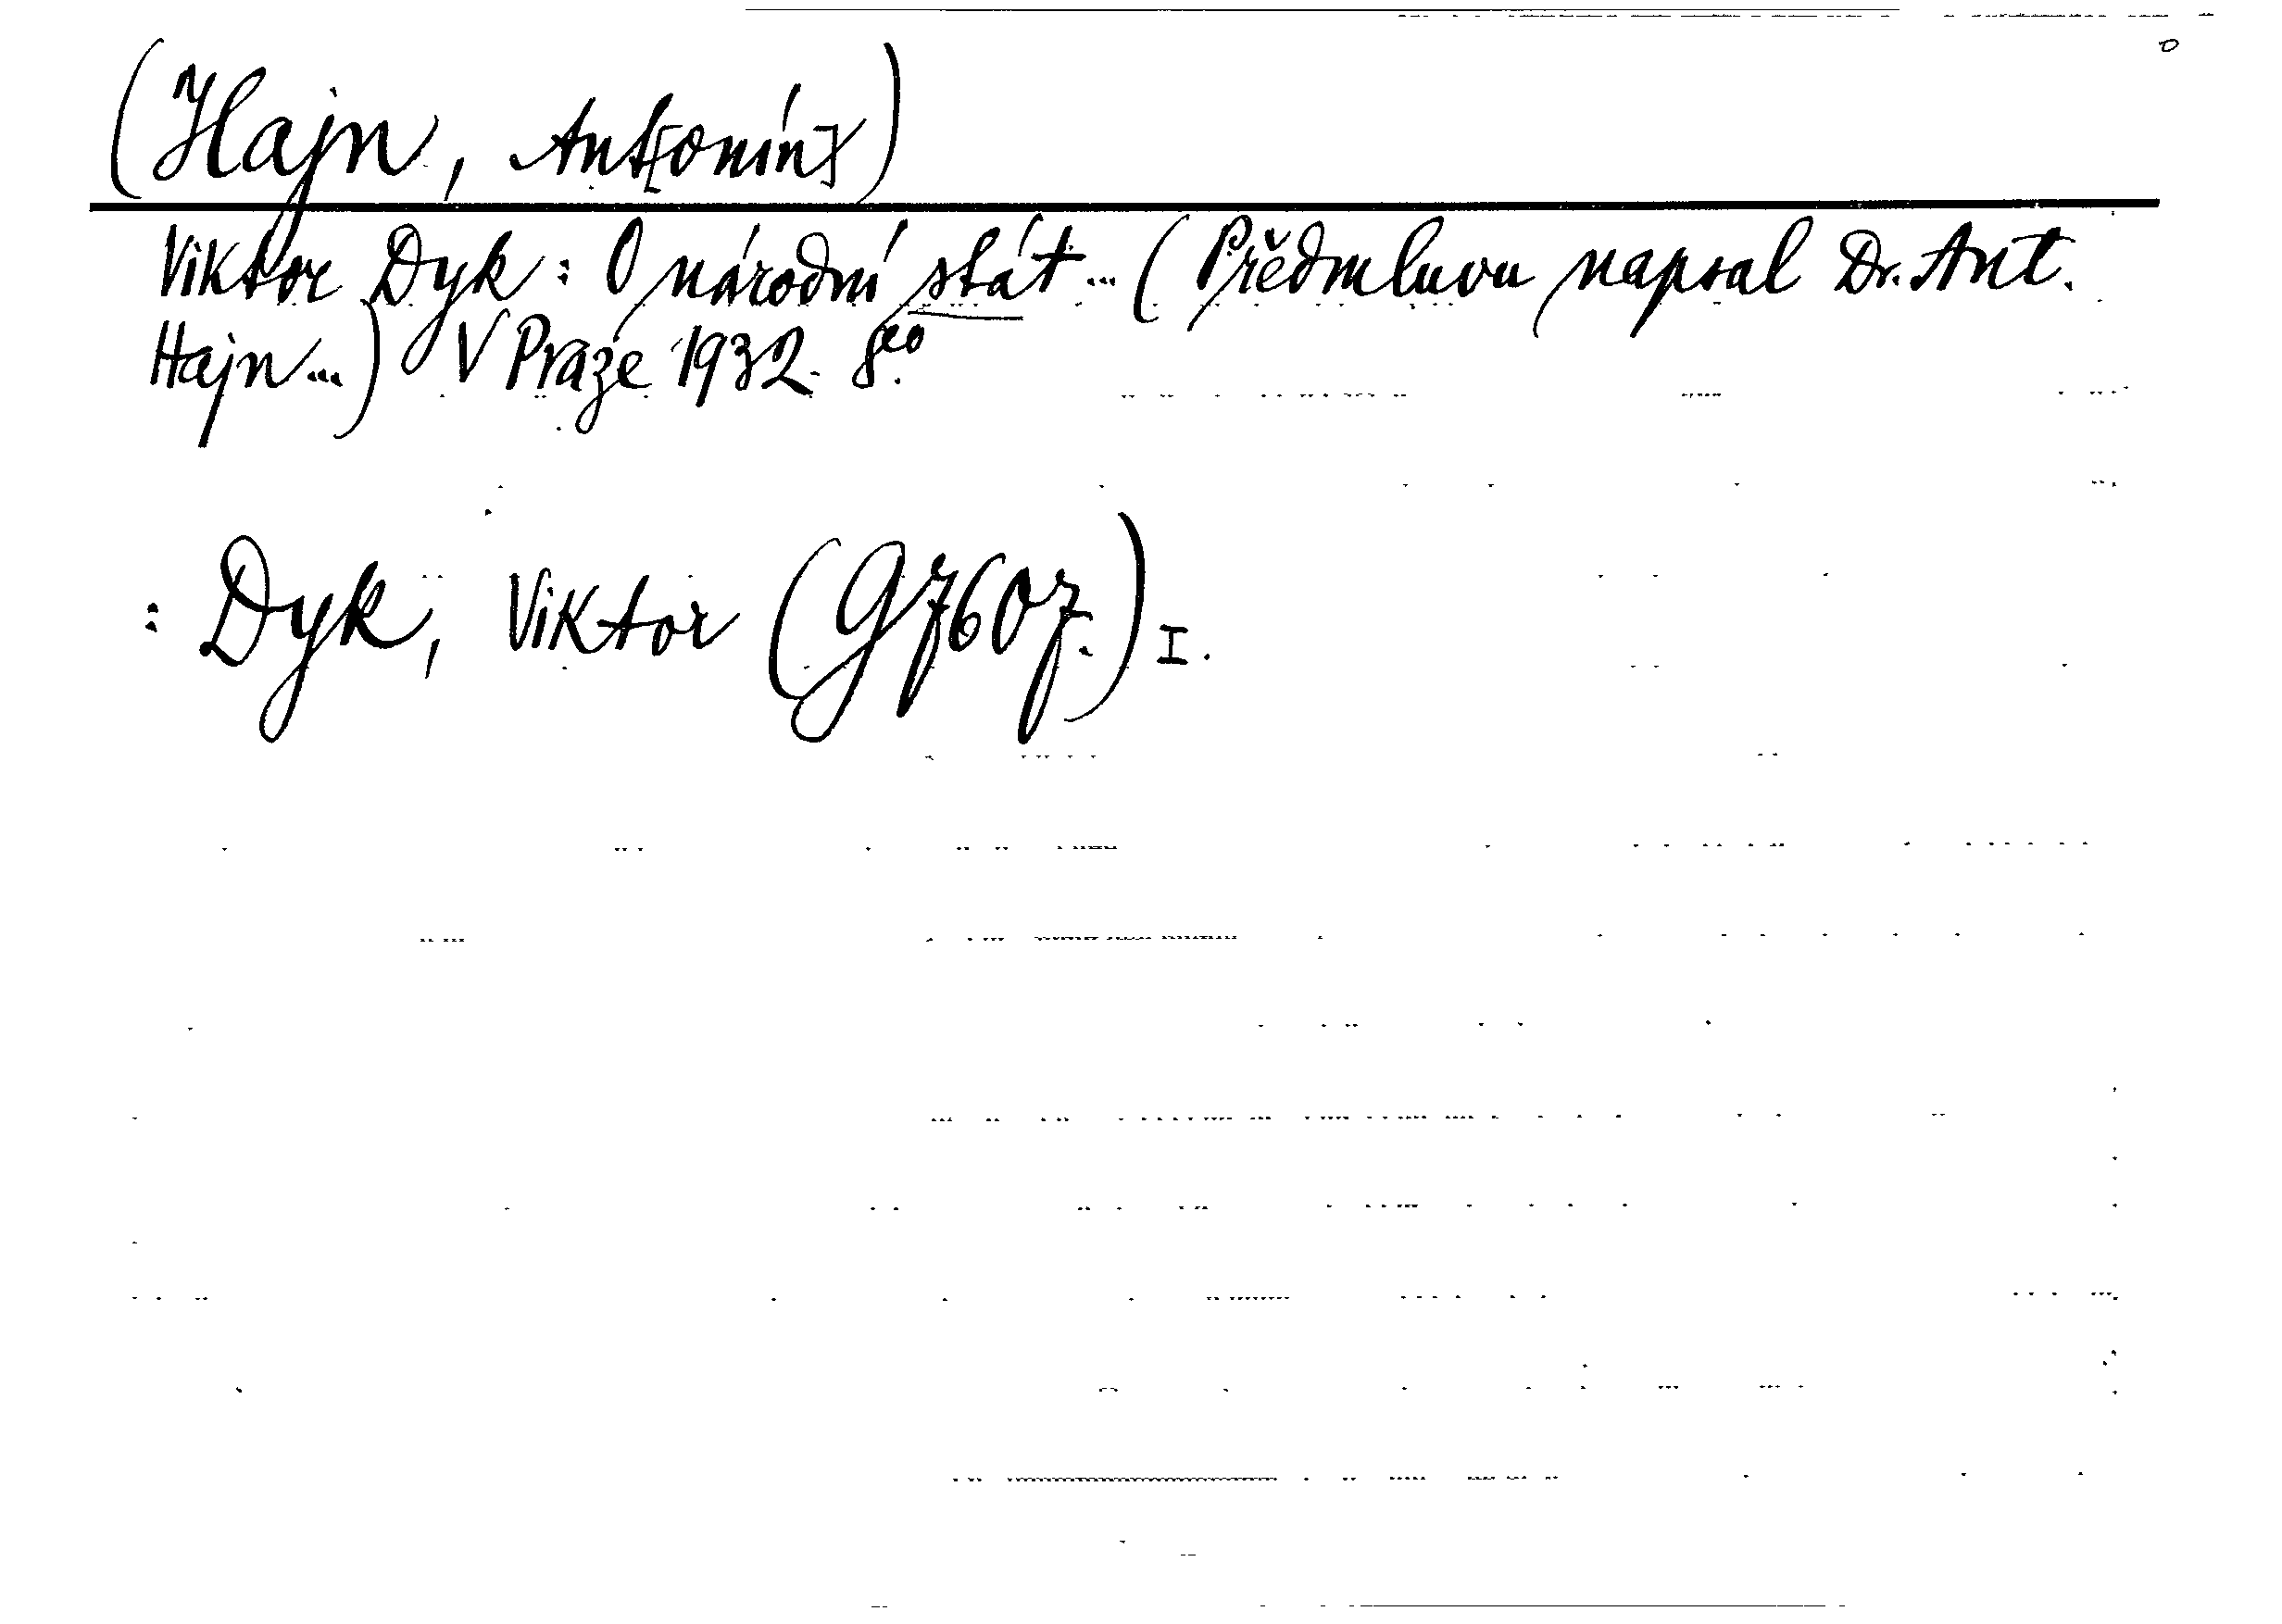 (Hajn, Ant[onín])
Viktor Dyk: O národní stát... (Předmluvu napsal Dr. Ant.
Hajn...) V Praze 1932. 8eo.
: Dyk, Viktor (G7607.) I.